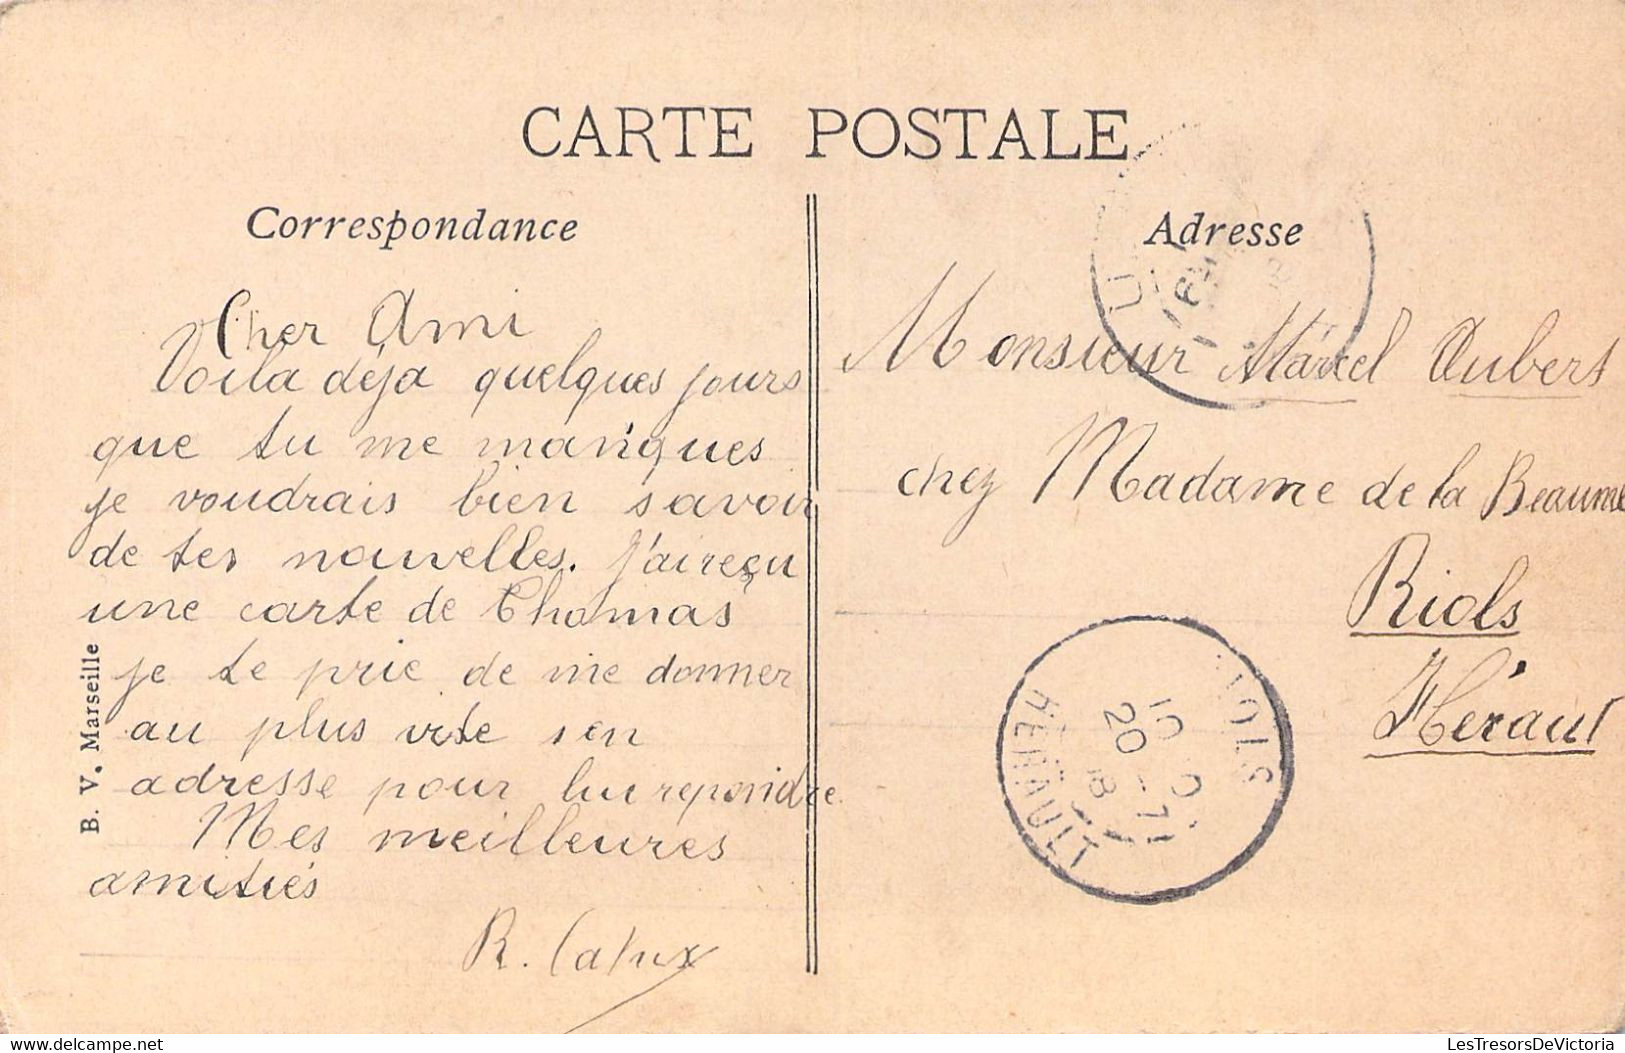 CARTE POSTALE
Correspondance
Adresse
Cher Ami
Voila déja quelques jours
que tu me manques
je voudrais bien savoir
de tes nouvelles. J'ai reçu
une carte de Thomas
je te prie de me donner
au plus vite son
adresse pour lui repondre
Mes meilleures
amitiés
R.
B. V. Marseille
Monsieur Marcel Aubert
chez Madame de la Beaume
Riols
Hérault
HÉRAULT
LesTresorsDeVictoria